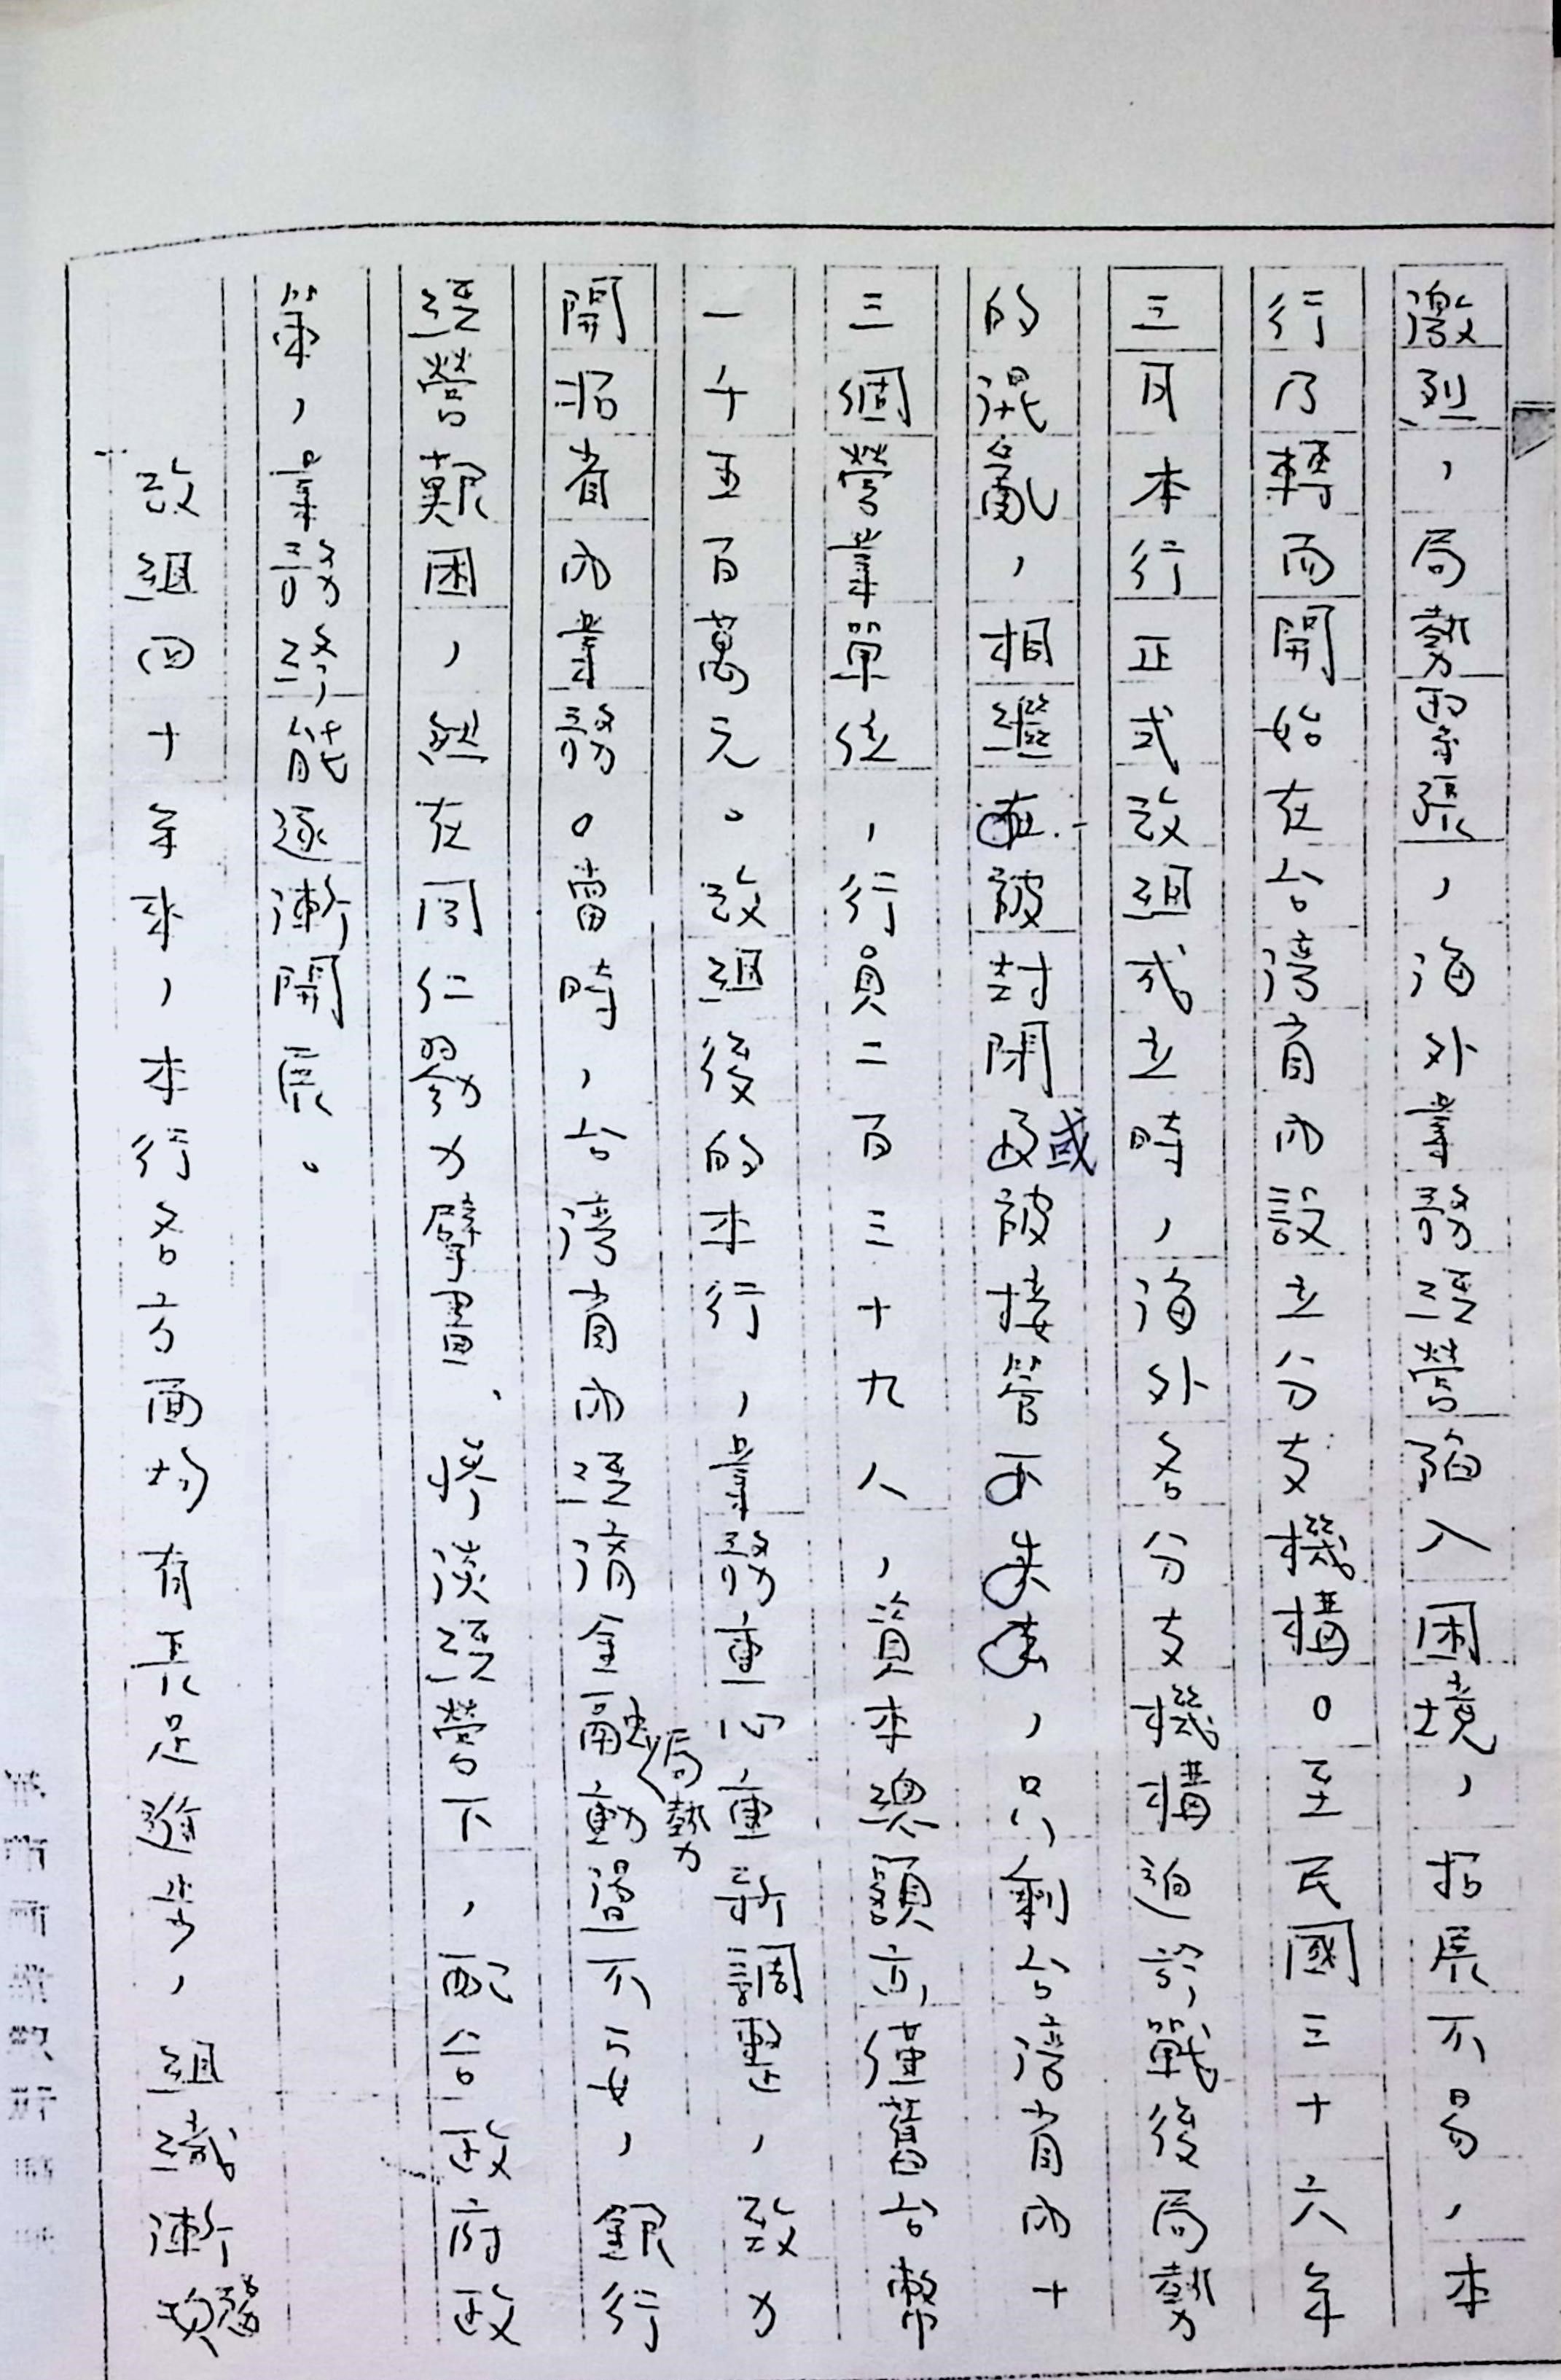 激烈，局勢緊張，海外業務經營陷入困境，拓展不易，本
行乃轉而開始在台灣省內設立分支機構。至民國三十六年
三月本行正式改組成立時，海外各分支機構迨於戰後局勢
的混亂，相繼被封閉或被接管，只剩台灣省內十
三個營業單位，行員二百三十九人，資本總額亦僅舊台幣
一千五百萬元。改組後的本行，業務重心重新調整，致力
開拓省內業務。當時，台灣省內經濟金融局勢動盪不安，銀行
經營頗困，惟在同仁努力耕耘，步步為營下，配合政府政
策，業務終能逐漸開展。
改組四十年來，本行各方面均有長足進步，組織漸趨